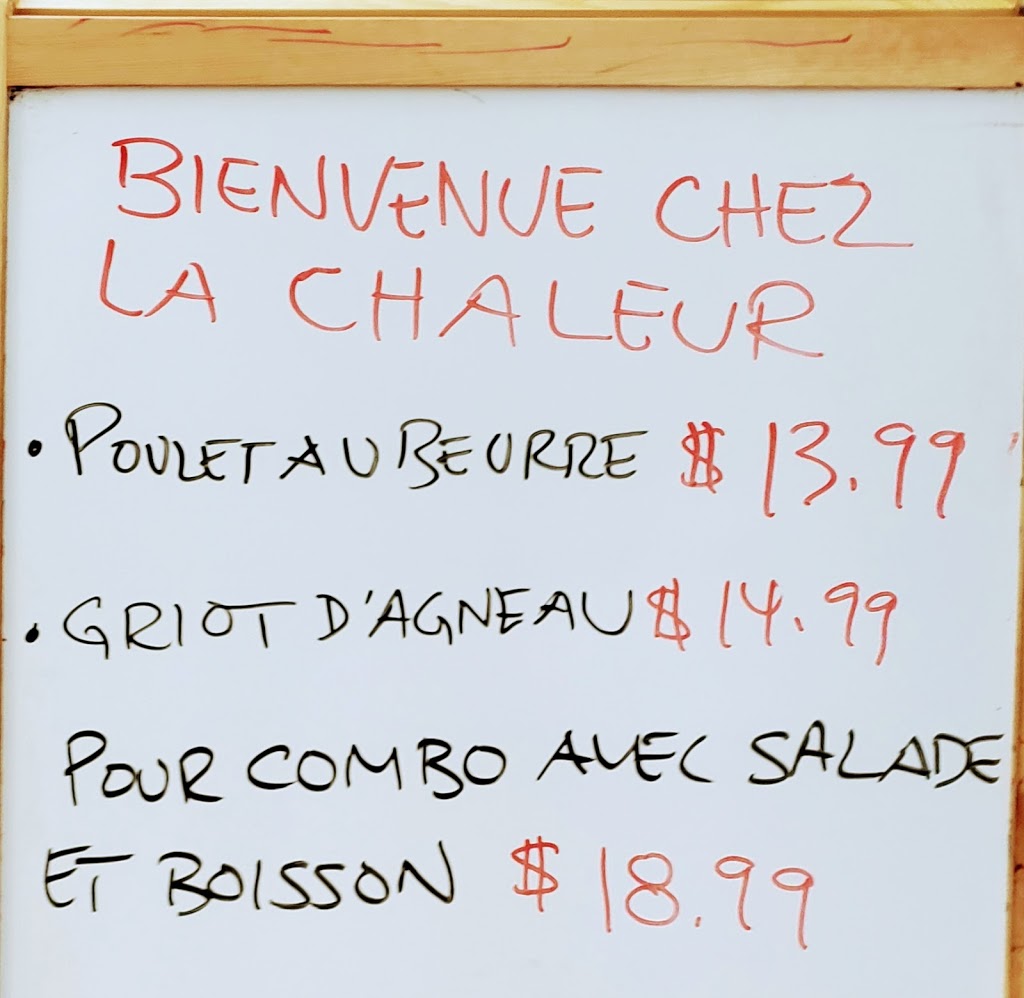 BIENVENUE CHEZ
LA CHALEUR
• POULET AU BEURRE $ 13.99
• GRIOT D'AGNEAU $ 14.99
POUR COMBO AVEC SALADE
ET BOISSON $ 18.99